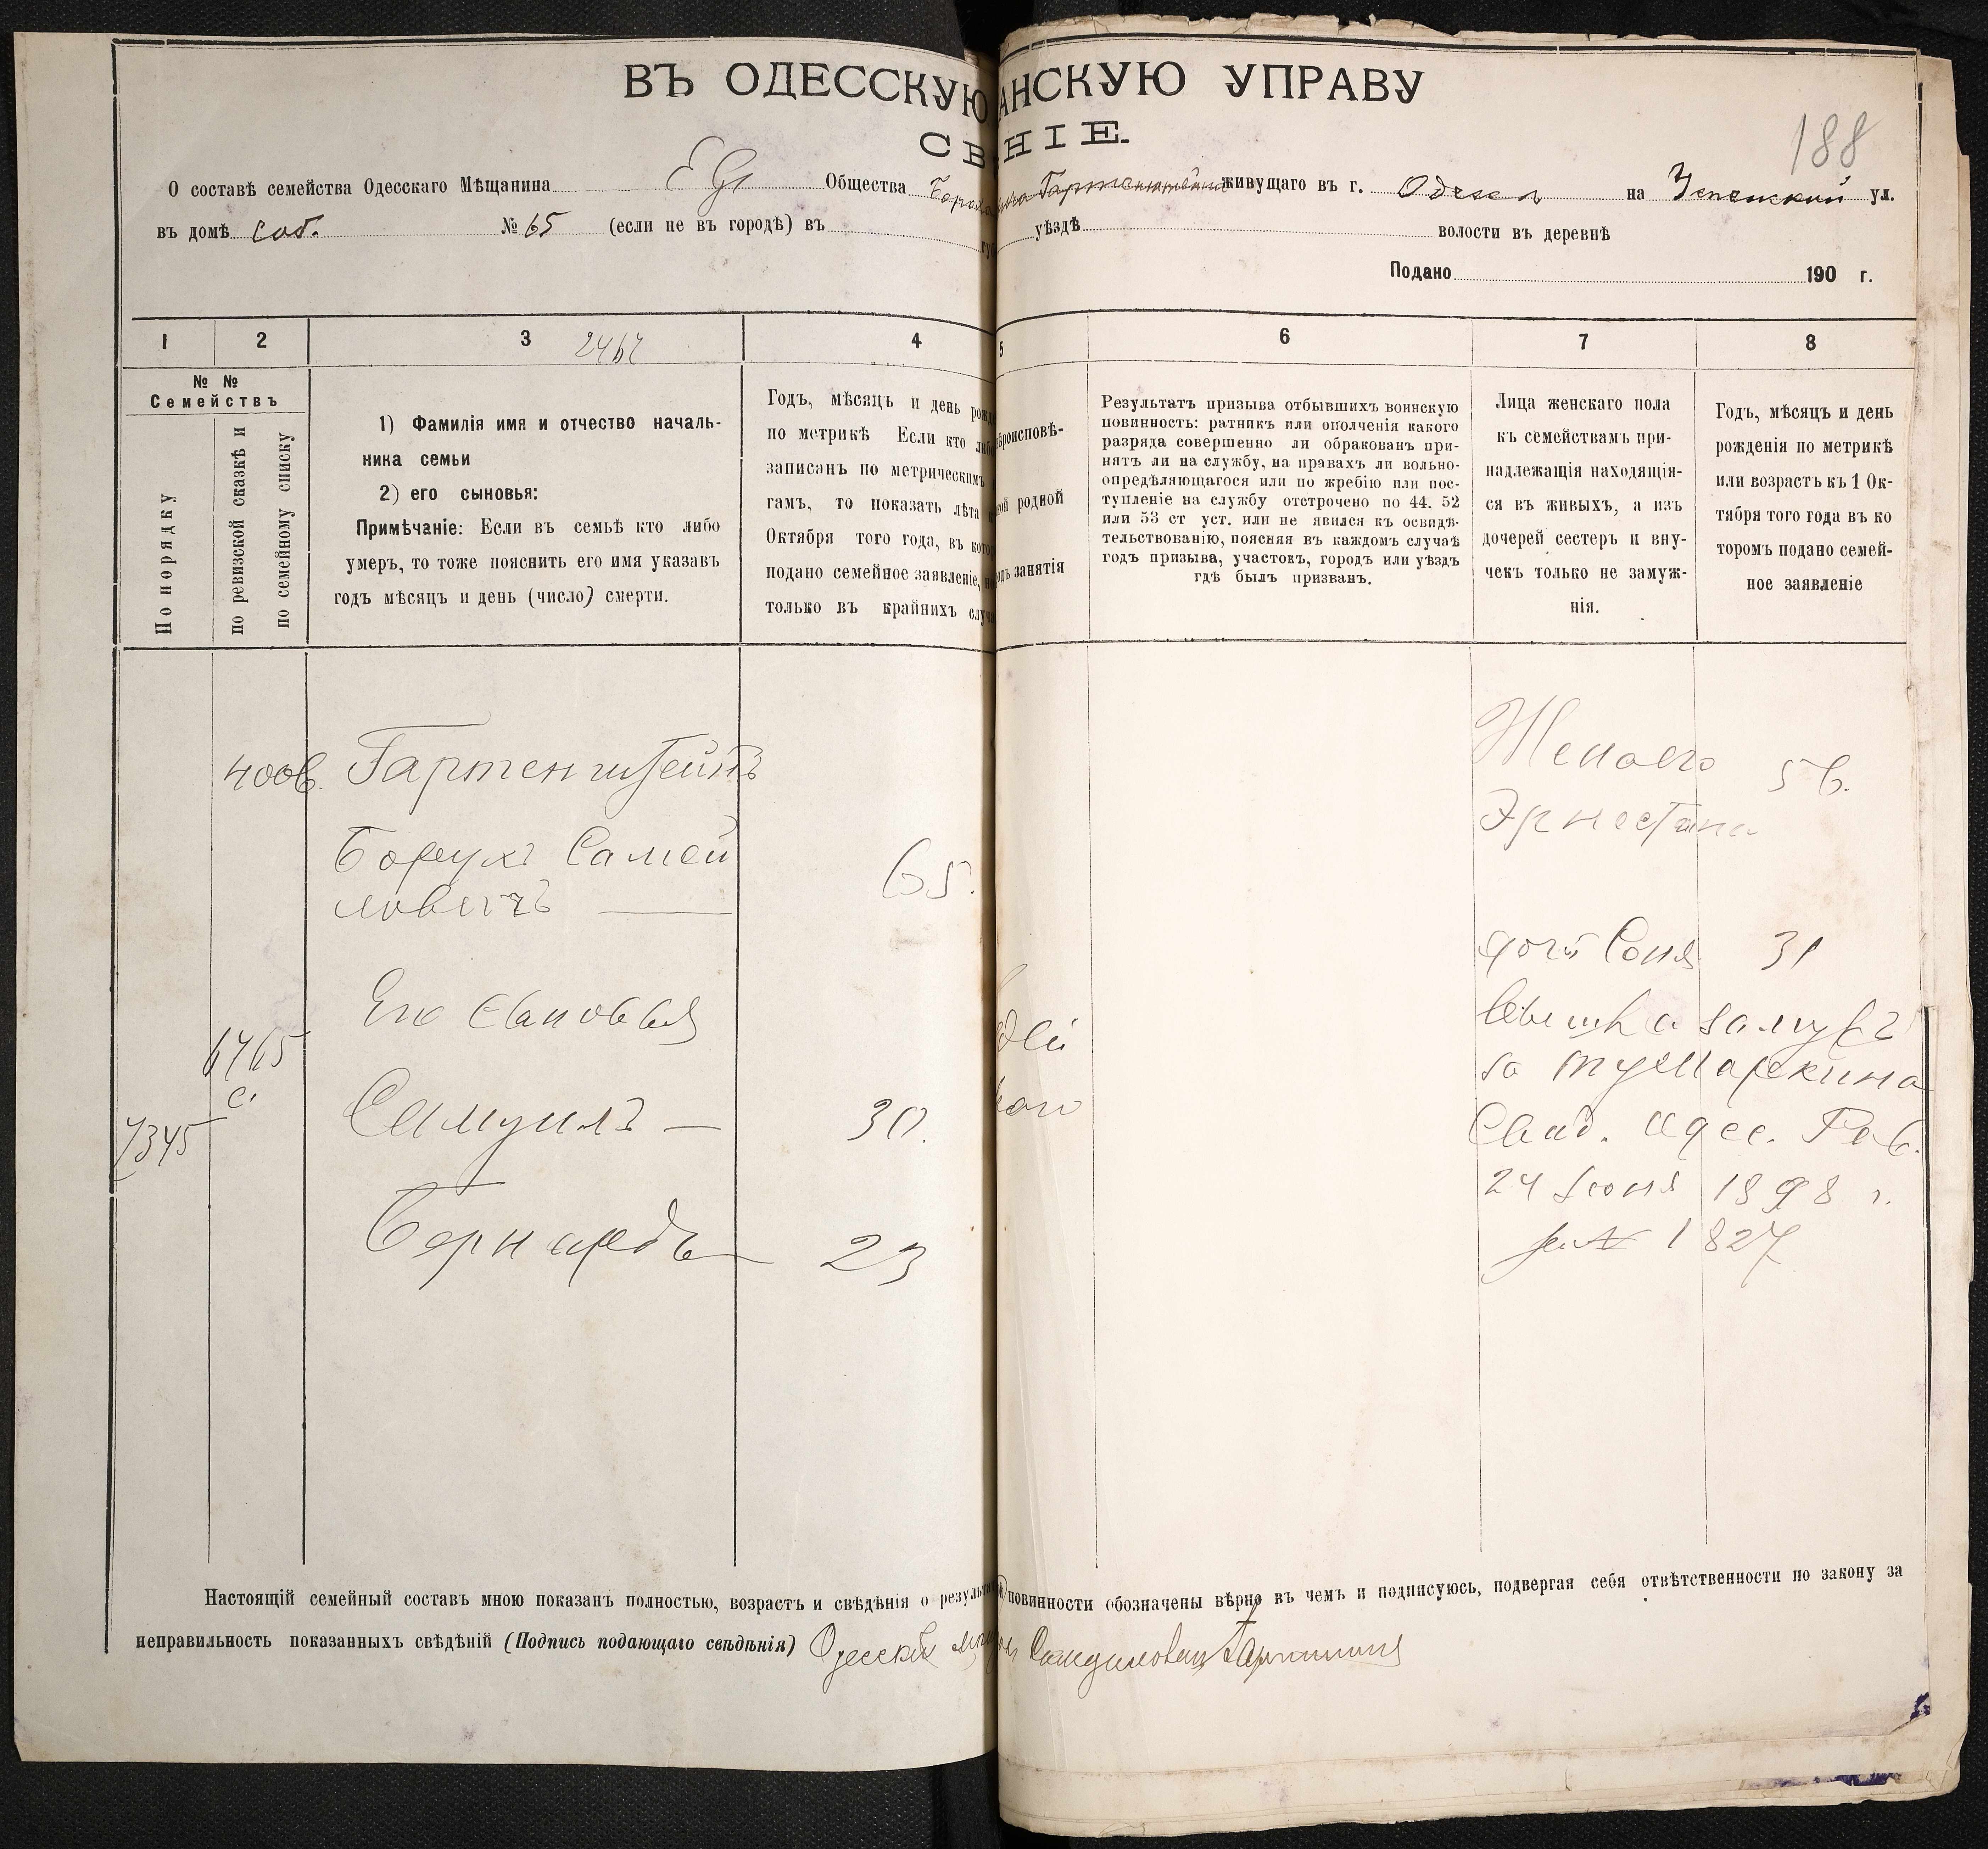 ВЪ ОДЕССКУЮ АНСКУЮ УПРАВУ
СВ НІЕ.
188
О составѣ семейства Одесскаго Мѣщанина Общества живущаго въ г. Одесса на Успенской ул.
въ домѣ соб. № 65 (если не въ городѣ) въ уѣздѣ волости въ деревнѣ
Подано 190 г.
1 2 3 4 5 6 7 8
№ №
Семействъ
По порядку
по ревизской сказкѣ и
по семейному списку
1) Фамилія имя и отчество началь-
ника семьи
2) его сыновья:
Примѣчаніе: Если въ семьѣ кто либо
умеръ, то тоже пояснить его имя указавъ
годъ мѣсяцъ и день (число) смерти.
Годъ, мѣсяцъ и день рожд
по метрикѣ Если кто либо
записанъ по метрическимъ
гамъ, то показать лѣта
Октября того года, въ кото
подано семейное заявленіе, но
только въ крайнихъ случа
ѣроисповѣ-
кой родной
одъ занятія
Результатъ призыва отбывшихъ воинскую
повинность: ратникъ или ополченія какого
разряда совершенно ли обракованъ при-
нятъ ли на службу, на правахъ ли вольно-
опредѣляющагося или по жребію или пос-
тупленіе на службу отсрочено по 44, 52
или 53 ст уст. или не явился къ освидѣ-
тельствованію, поясняя въ каждомъ случаѣ
годъ призыва, участокъ, городъ или уѣздъ
гдѣ былъ призванъ.
Лица женскаго пола
къ семействамъ при-
надлежащія находящія-
ся въ живыхъ, а изъ
дочерей сестеръ и вну-
чекъ только не замуж-
нія.
Годъ, мѣсяцъ и день
рожденія по метрикѣ
или возрастъ къ 1 Ок-
тября того года въ ко
торомъ подано семей-
ное заявленіе
Гартенштейнъ
Борухъ Самой
ловичъ
65.
Его сыновья
6765
с.
7345
Самуилъ — 30.
Бернардъ 23
Жена его 56.
Эрнестина
дочь Соня 31
вышла замужъ
за Тумаркина
Свид. Одес. Рав.
24 Іюня 1898 г.
за № 1827
Настоящій семейный составъ мною показанъ полностью, возрастъ и свѣдѣнія о результ повинности обозначены вѣрно въ чемъ и подписуюсь, подвергая себя отвѣтственности по закону за
неправильность показанныхъ свѣдѣній (Подпись подающаго свѣдѣнія) Одесскій